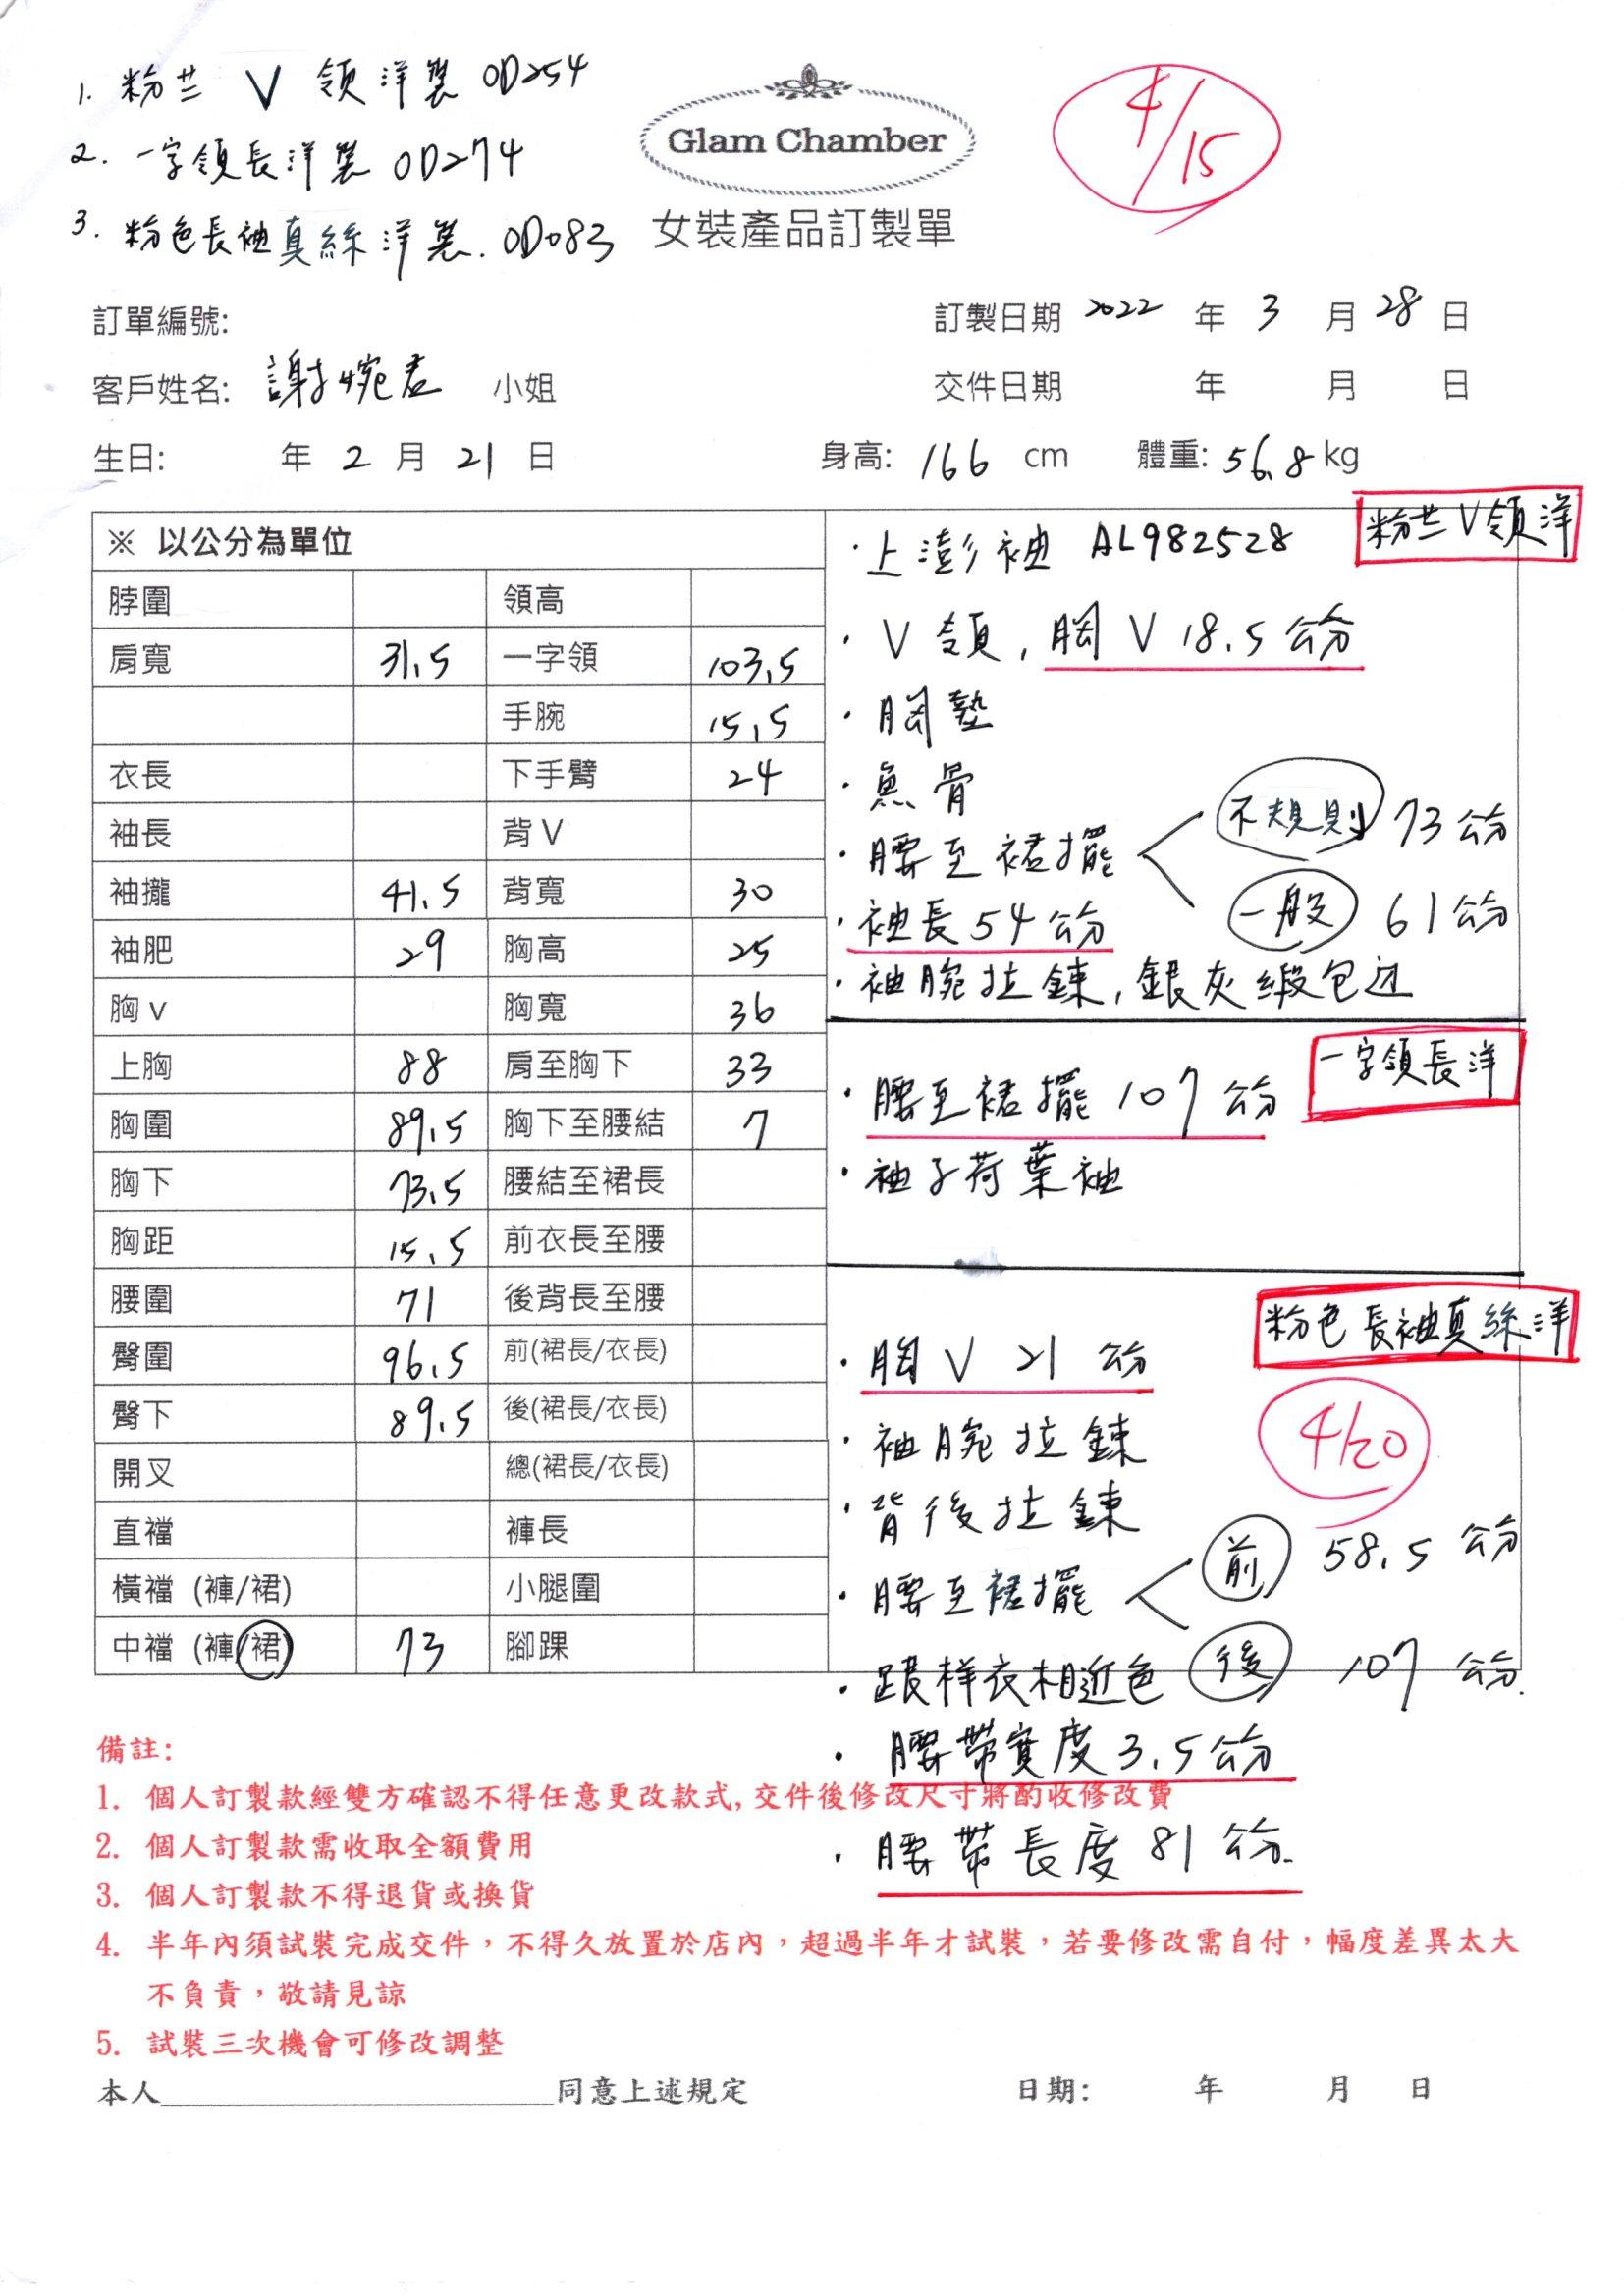 1. 粉芒 V 領洋裝 OD254
2. 一字領長洋裝 OD274
3. 粉色長袖真絲洋裝. OD083
Glam Chamber
女裝產品訂製單
4/15
訂單編號:
訂製日期 2022 年 3 月 28 日
客戶姓名: 謝婉君 小姐
交件日期 年 月 日
生日: 年 2 月 21 日
身高: 166 cm 體重: 56.8 kg
※ 以公分為單位
脖圍 領高
肩寬 31.5 一字領 103.5
手腕 15.5
衣長 下手臂 24
袖長 背V
袖攏 41.5 背寬 30
袖肥 29 胸高 25
胸v 胸寬 36
上胸 88 肩至胸下 33
胸圍 89.5 胸下至腰結 7
胸下 73.5 腰結至裙長
胸距 15.5 前衣長至腰
腰圍 71 後背長至腰
臀圍 96.5 前(裙長/衣長)
臀下 89.5 後(裙長/衣長)
開叉 總(裙長/衣長)
直襠 褲長
橫襠 (褲/裙) 小腿圍
中襠 (褲/裙) 73 腳踝
粉芒V領洋
·上澎袖 AL982528
·V領, 胸V 18.5公分
·胸墊
·魚骨
·腰至裙擺 不規則 73公分
一般 61公分
·袖長54公分
·袖腕拉鍊, 銀灰緞包边
一字領長洋
·腰至裙擺 107公分
·袖子荷葉袖
粉色長袖真絲洋
·胸V 21公分
4/20
·袖腕拉鍊
·背後拉鍊
·腰至裙擺 前 58.5公分
後 107公分.
·跟样衣相近色
·腰帶寬度3.5公分
·腰帶長度81公分.
備註:
1. 個人訂製款經雙方確認不得任意更改款式,交件後修改尺寸將酌收修改費
2. 個人訂製款需收取全額費用
3. 個人訂製款不得退貨或換貨
4. 半年內須試裝完成交件，不得久放置於店內，超過半年才試裝，若要修改需自付，幅度差異太大
不負責，敬請見諒
5. 試裝三次機會可修改調整
本人____________________同意上述規定 日期: 年 月 日